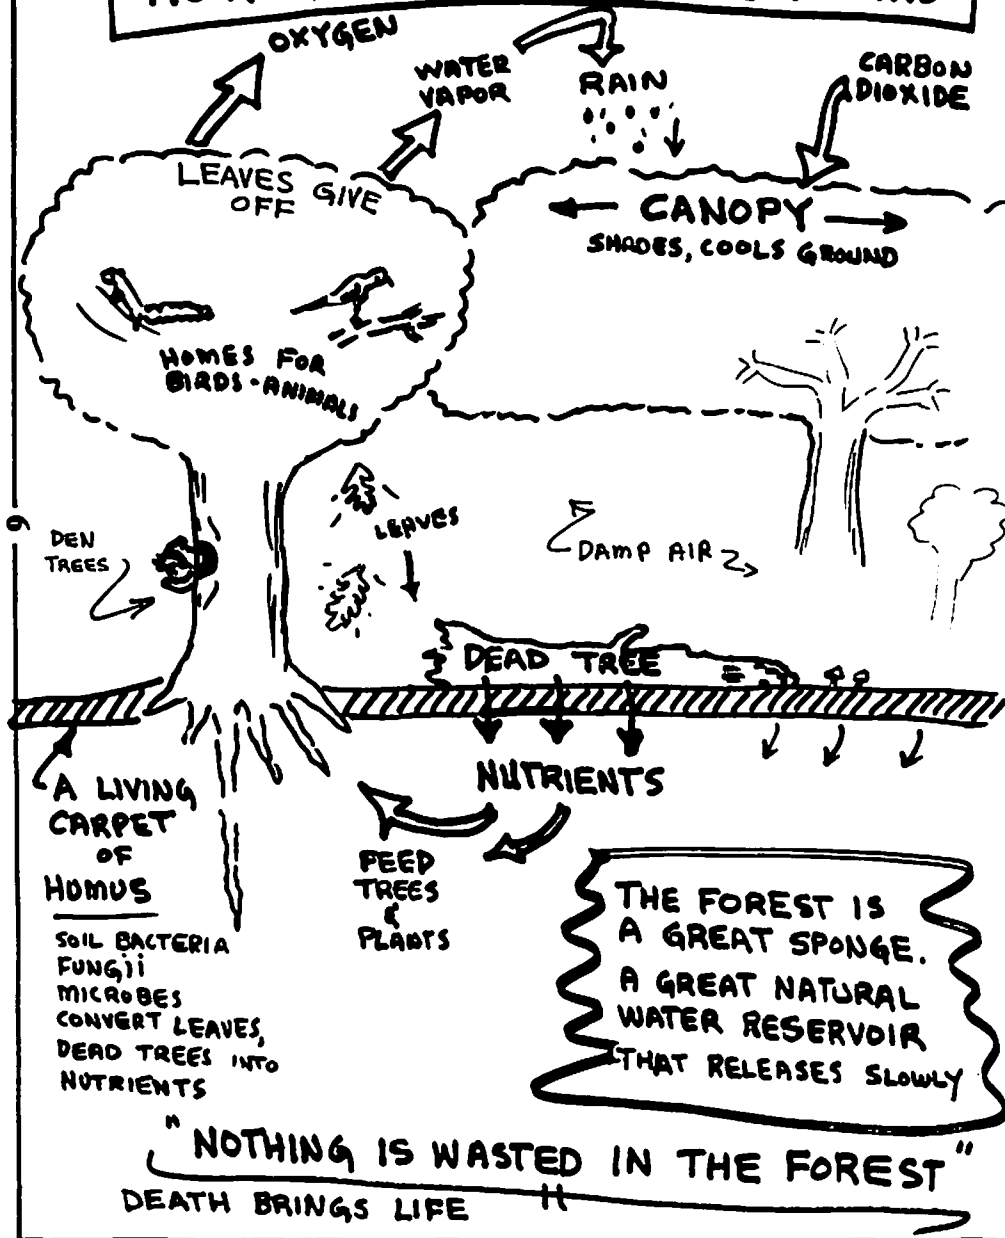 OXYGEN
WATER
VAPOR
RAIN
CARBON
DIOXIDE
LEAVES GIVE
OFF
CANOPY
SHADES, COOLS GROUND
HOMES FOR
BIRDS - ANIMALS
LEAVES
DEN
TREES
DAMP AIR
DEAD TREE
NUTRIENTS
A LIVING
CARPET
OF
HUMUS
SOIL BACTERIA
FUNGII
MICROBES
CONVERT LEAVES,
DEAD TREES INTO
NUTRIENTS
FEED
TREES
&
PLANTS
THE FOREST IS
A GREAT SPONGE.
A GREAT NATURAL
WATER RESERVOIR
THAT RELEASES SLOWLY
"NOTHING IS WASTED IN THE FOREST"
DEATH BRINGS LIFE